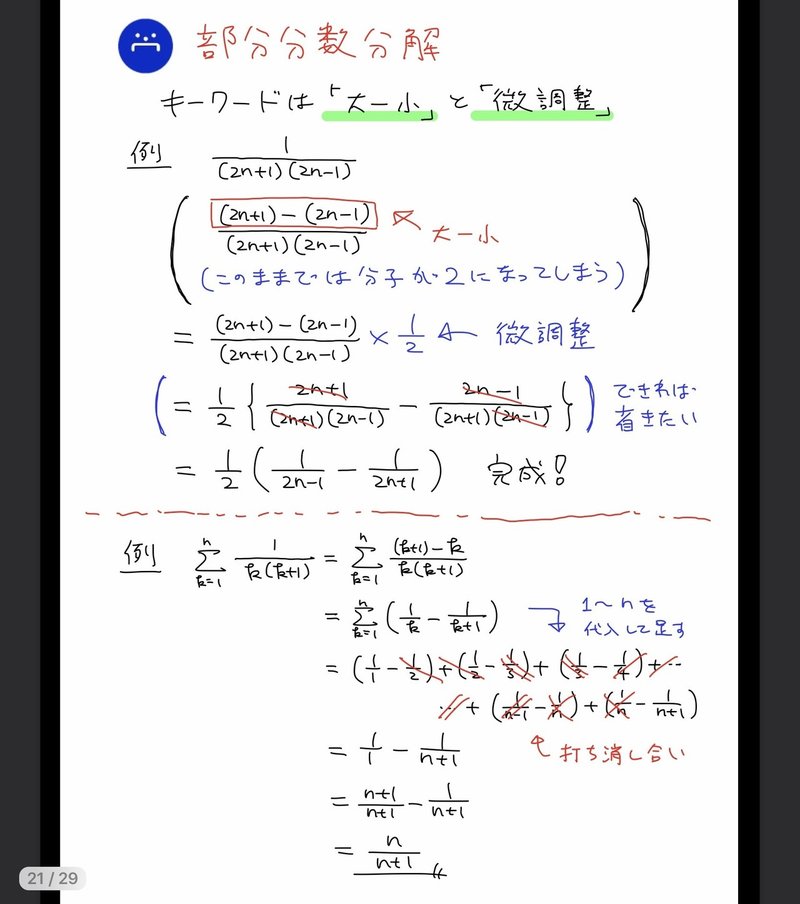 部分分数分解
キーワードは「大-小」と「微調整」
例 1/((2n+1)(2n-1))
( ((2n+1)-(2n-1))/((2n+1)(2n-1)) 大-小
(このままでは分子が2になってしまう) )
= ((2n+1)-(2n-1))/((2n+1)(2n-1)) × 1/2 ← 微調整
( = 1/2 { (2n+1)/((2n+1)(2n-1)) - (2n-1)/((2n+1)(2n-1)) } ) できれば
省きたい
= 1/2 ( 1/(2n-1) - 1/(2n+1) ) 完成!
例 Σ_{k=1}^{n} 1/(k(k+1)) = Σ_{k=1}^{n} ((k+1)-k)/(k(k+1))
= Σ_{k=1}^{n} ( 1/k - 1/(k+1) ) 1〜nを
代入して足す
= (1/1 - 1/2) + (1/2 - 1/3) + (1/3 - 1/4) + …
… + (1/(n-1) - 1/n) + (1/n - 1/(n+1))
= 1/1 - 1/(n+1) 打ち消し合い
= (n+1)/(n+1) - 1/(n+1)
= n/(n+1)
21 / 29